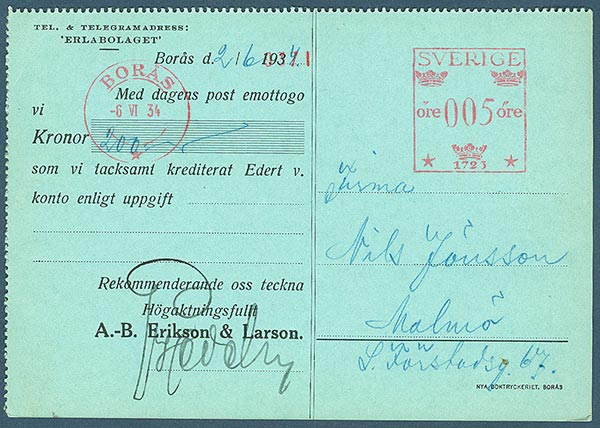 TEL. & TELEGRAMADRESS:
'ERLABOLAGET'
Borås d. 2/6 1934.
0371
BORÅS
-6 VI 34
Med dagens post emottogo
vi
Kronor 200:-
som vi tacksamt krediterat Edert v.
konto enligt uppgift
Rekommenderande oss teckna
Högaktningsfullt
A.-B. Erikson & Larson.
SVERIGE
öre 005 öre
1723
Firma
Nils Jönsson
Malmö
S. Förstadsg. 67.
NYA BOKTRYCKERIET, BORÅS